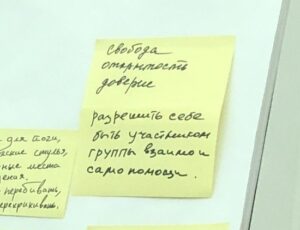 свобода
открытость
доверие
разрешить себе
быть участником
группы взаимо и
самопомощи.
для йоги,
стулья,
места
перебивать,
перекрикивать.